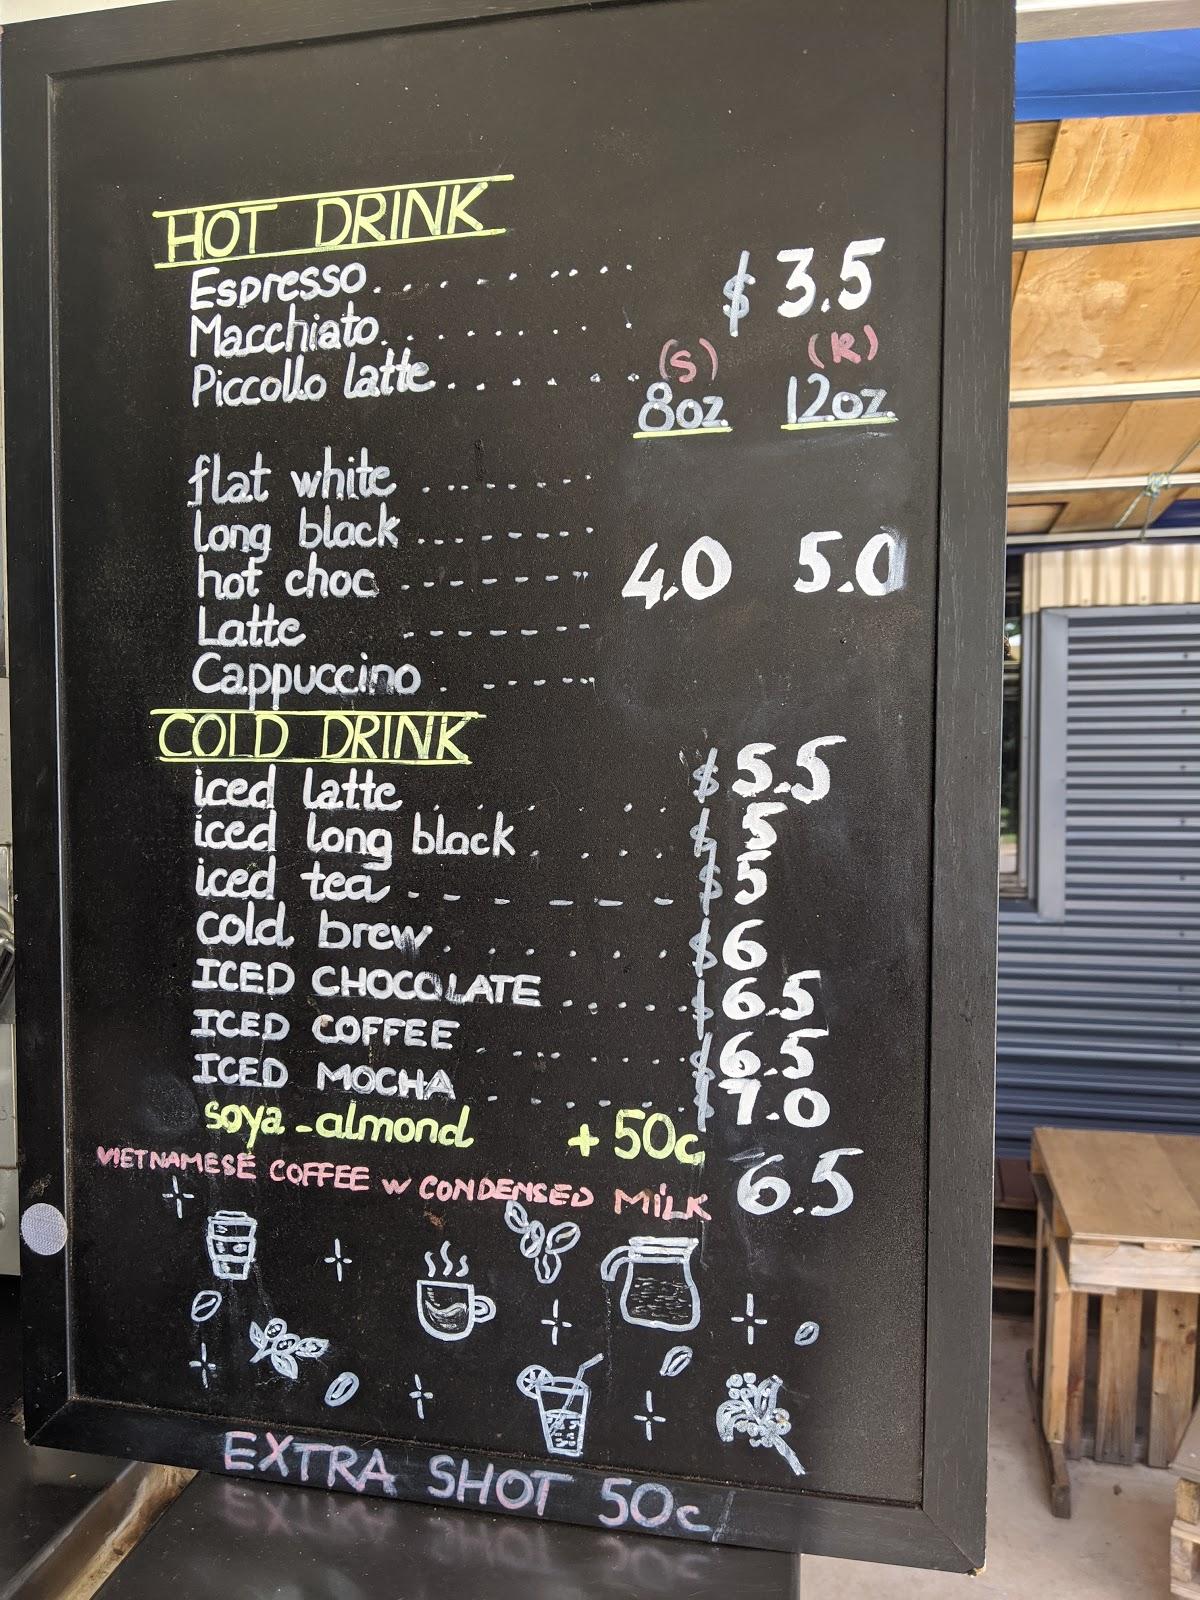 HOT DRINK
Espresso. . . . . . . . . $ 3.5
Macchiato. . . . . . . .
Piccollo latte. . . . . . . (S) (R)
8oz. 12oz.
flat white . . . . . . . .
long black . . . . . . . .
hot choc . - - - - - - - 4.0 5.0
Latte - - - - - - - -
Cappuccino . - - - - -
COLD DRINK
iced latte . . . . . . . $ 5.5
iced long black . . . . . $ 5
iced tea - - - - - - - $ 5
cold brew. . . . . . . $ 6
ICED CHOCOLATE . . . . . . $ 6.5
ICED COFFEE . . . . . . . $ 6.5
ICED MOCHA . . . . . . . $ 7.0
soya - almond + 50c
VIETNAMESE COFFEE W CONDENSED MILK 6.5
EXTRA SHOT 50c